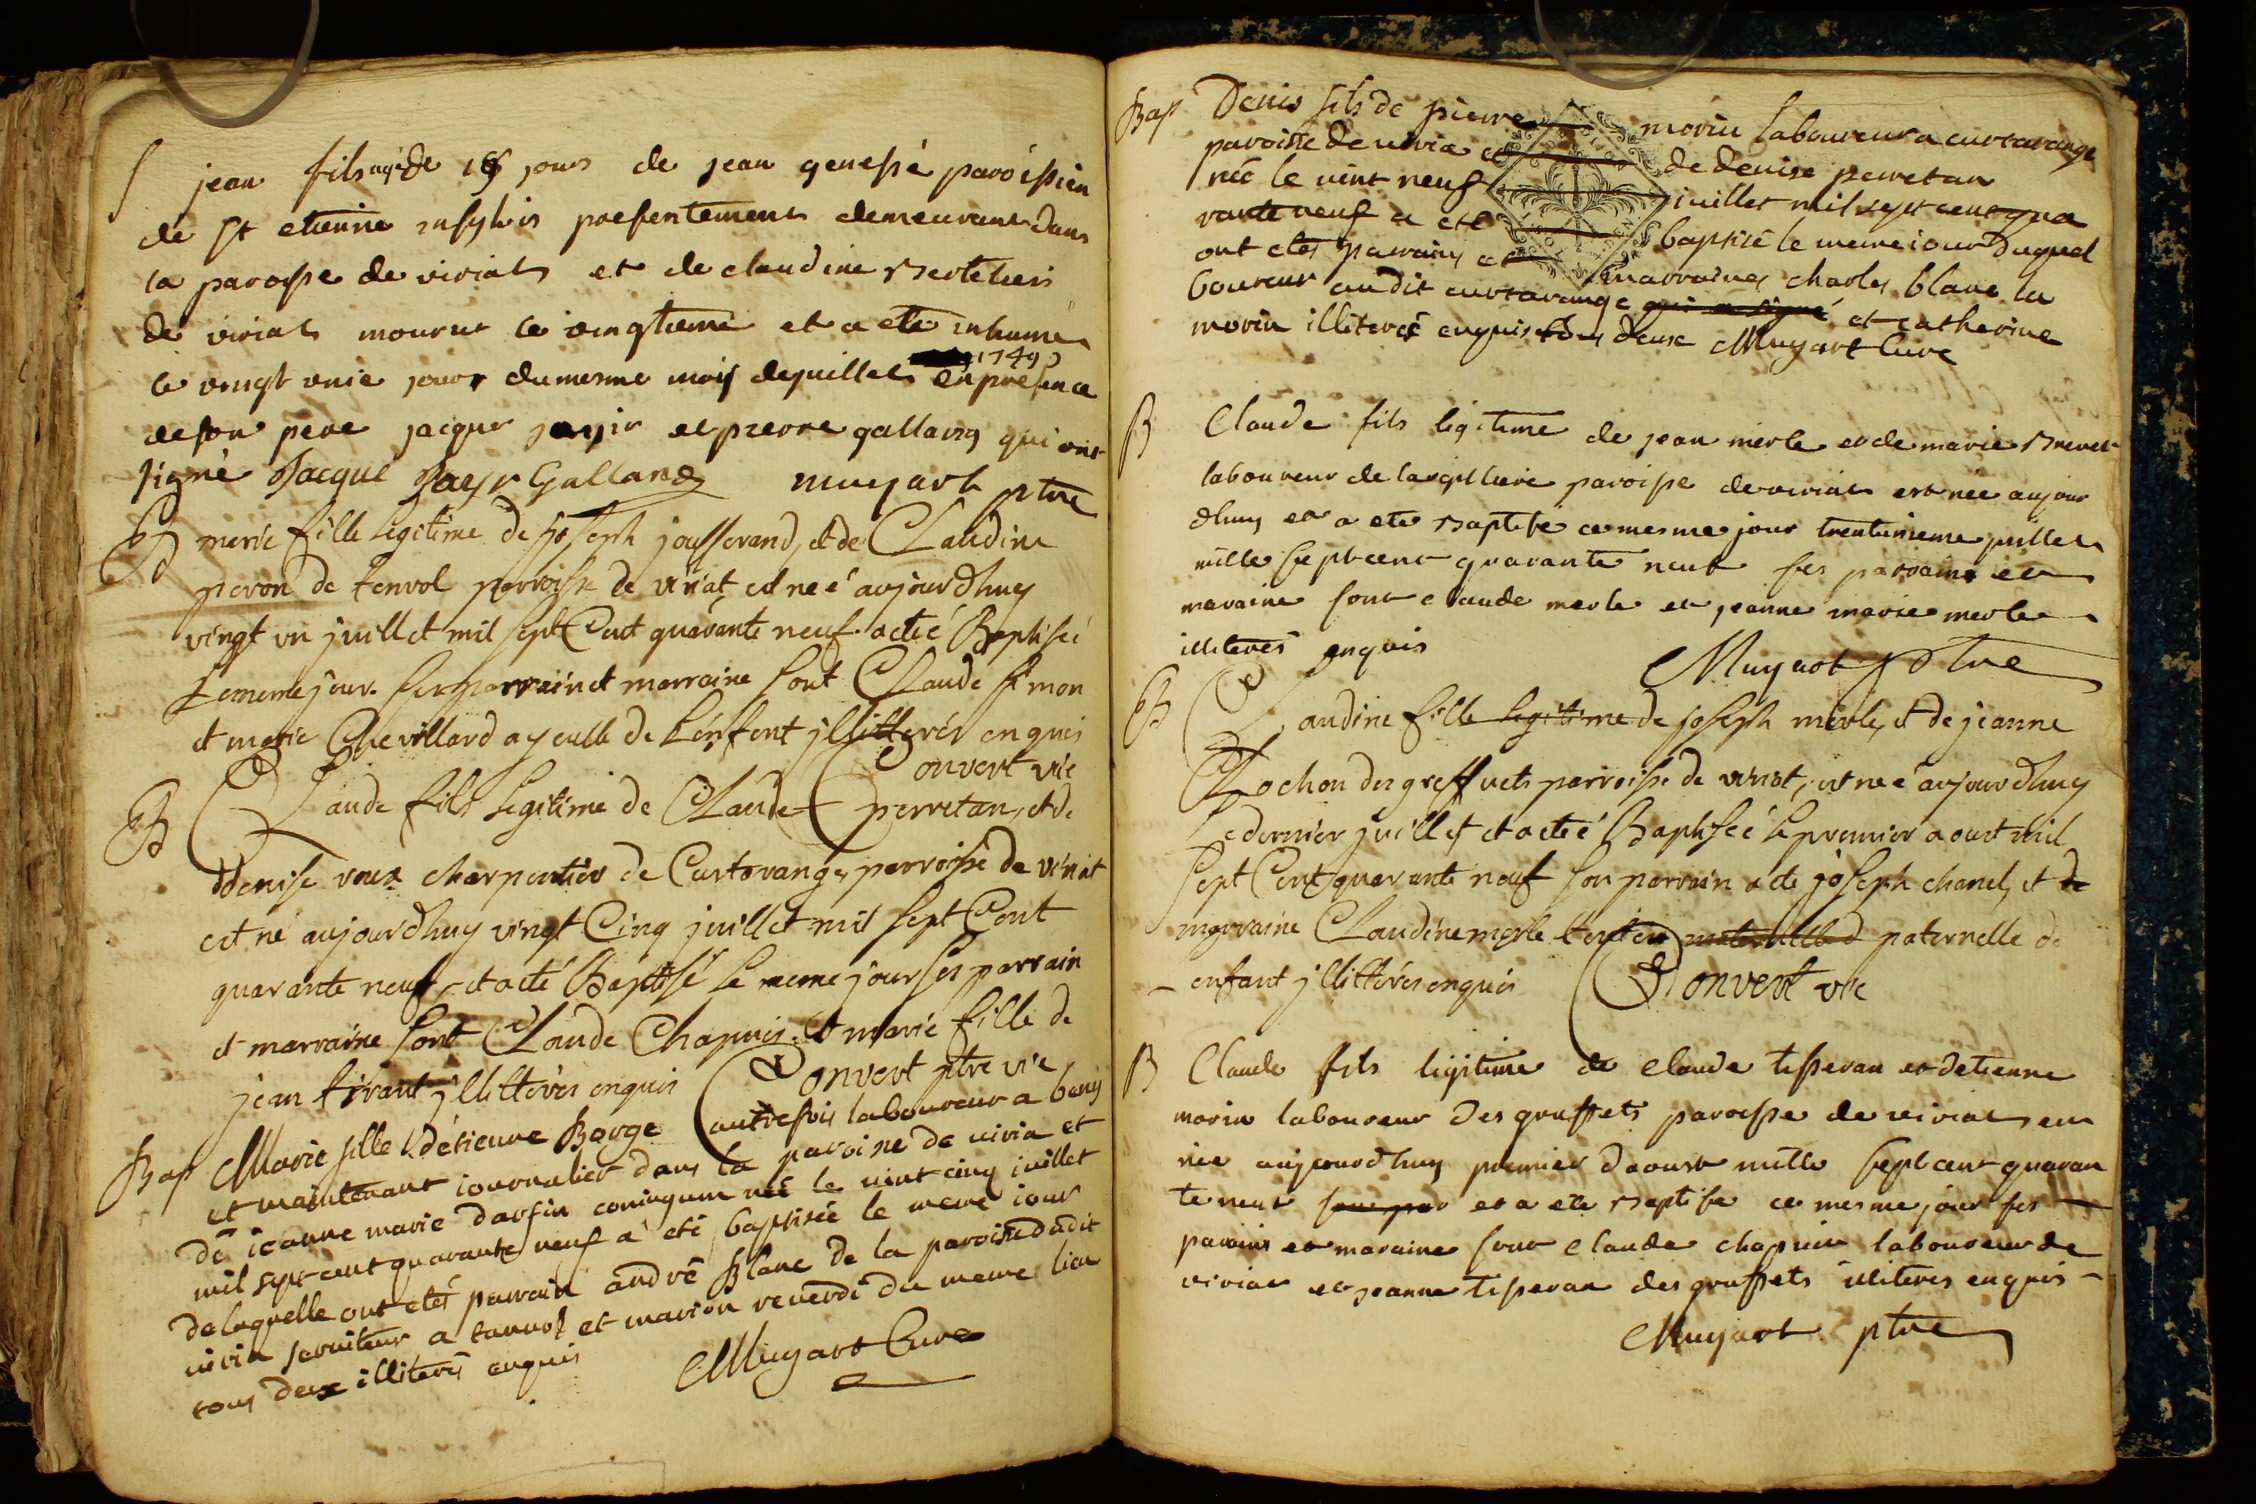 S jean fils agé de 15 jours de jean genessé paroissien
de St etienne insylvis presentement demeurant dans
la paroisse de viriat et de claudine
de viriat mourut le vingtieme et a eté inhumé
le vingt unie jour du mesme mois de juillet 1749 en presence
de son pere jacque et pierre galland qui ont
signé Jacque Galland muyart ptre
B marie fille legitime de joseph jousserand, et de Claudine
peron de tenvol parroisse de viriat est neé aujourdhuy
vingt un juillet mil sept Cent quarante neuf a eteé Baptiseé
le meme jour. ses parrain et marraine sont Claude simon
et marie Chevillard ayeulle de l'enfent jllitterés enquis
Convert vic
B Claude fils legitime de Claude perretan, et de
denise roux charpentier de Curtarange, parroisse de viriat
est né aujourdhuy vingt Cinq juillet mil sept Cent
quarante neuf, et a eté Baptisé le meme jour ses parrain
et marraine sont Claude Chapuis. et marie fille de
jean tirant jllitterés enquis Convert ptre vic
Bap Marie fille d'étienne Borge autrefois laboureur a bouis
et maintenant iournalier dans la paroisse de viria et
de ieanne marie darfin née le vint cinq iuillet
mil sept cent quarante neuf a eté baptisée le meme iour
de laquelle ont etés parrain andré Blanc de la paroisse dudit
viria serviteur a tanvol et marion reverdi du meme lieu
tous deux illiterés enquis Muyart Curé
Bap Denis fils de pierre morin laboureur a curtarange
paroisse de viria et de denise perretan
née le vint neuf iuillet mil sept cent qua
rante neuf a eté baptisé le meme iour duquel
ont etés parrains et marraines charles blanc la
boureur audit curtarange qui a signé et catherine
morin illiterés enquis tous deux Muyart Curé
B Claude fils legitime de jean merle et de marie
laboureur de paroisse de viriat est née aujour
dhuy et a eté baptisé ce mesme jour trentunieme juillet
mille sept cent quarante neuf ses parains et
maraine sont claude merle et jeanne marie merle
illiterés enquis
Muyart ptre
B Claudine fille legitime de joseph merle, et de jeanne
Cochon des greffuets parroisse de viriat, est neé aujourdhuy
le dernier juillet et a eteé Baptiseé le premier aoust mil
sept Cent quarante neuf son parrain a eté joseph chanel, et de
marraine Claudine merle paternelle de
enfant jllitterés enquis Convert vic
B Claude fils legitime de Claude tisseran et detienne
morin laboureur des gruffets paroisse de viriat
née aujourdhuy premier daoust mille sept cent quaran
te neuf et a eté baptisé ce mesme jour ses
parains et maraine sont claude chapuis laboureur de
viriat et jeanne tisseran des gruffets illiterés enquis
Muyart ptre